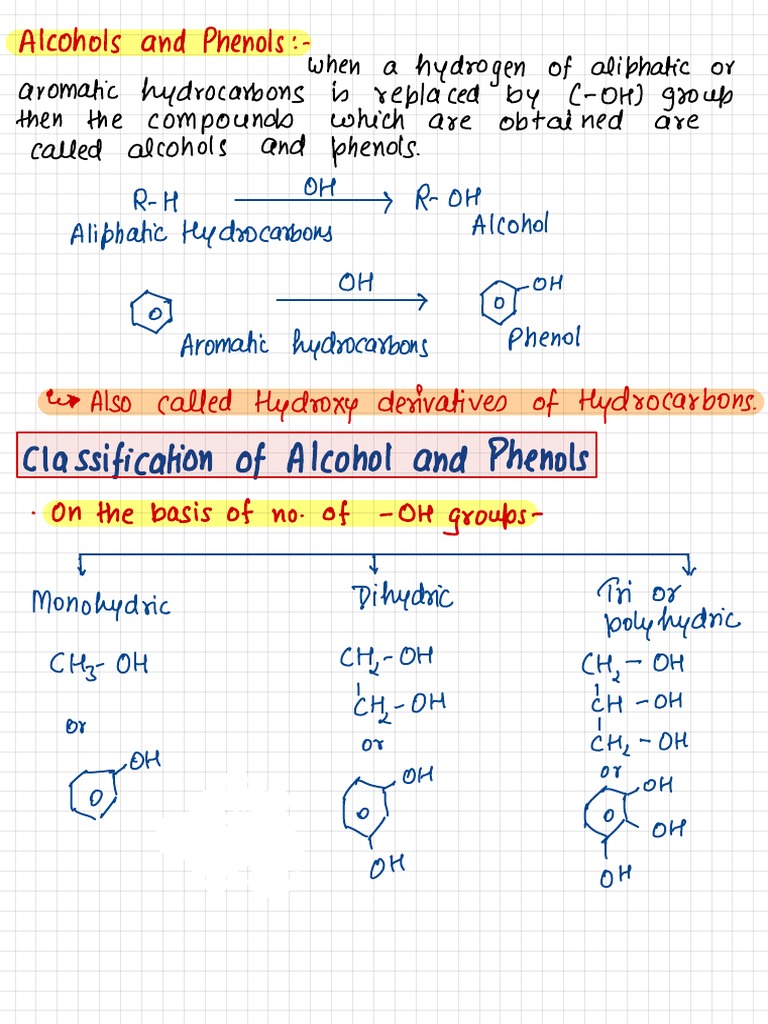 Alcohols and Phenols:-
when a hydrogen of aliphatic or
aromatic hydrocarbons is replaced by (-OH) group
then the compounds which are obtained are
called alcohols and phenols.
R-H OH R-OH
Aliphatic Hydrocarbons Alcohol
OH OH
Aromatic hydrocarbons Phenol
Also called Hydroxy derivatives of Hydrocarbons.
Classification of Alcohol and Phenols
· On the basis of no. of -OH groups-
Monohydric Dihydric Tri or
polyhydric
CH₃-OH CH₂-OH CH₂-OH
CH₂-OH CH-OH
or or CH₂-OH
or
OH OH OH
OH
OH OH